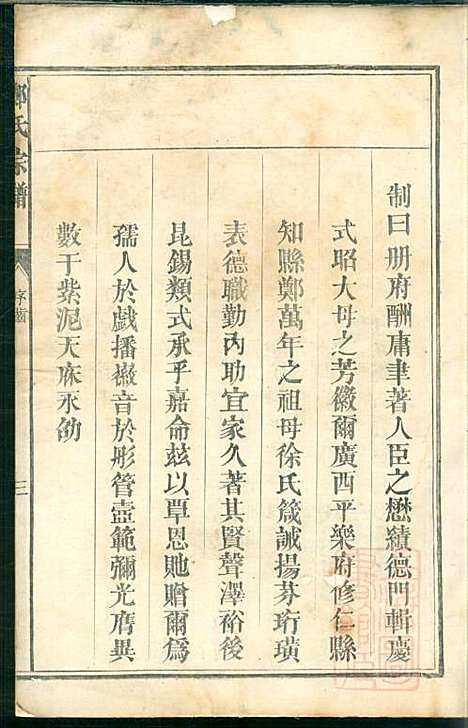 制曰册府酬庸聿著人臣之懋績德門輯慶
式昭大母之芳徽爾廣西平樂府修仁縣
知縣鄭萬年之祖母徐氏箴誡揚芬珩璜
表德職勤内助宜家久著其賢聲澤裕後
昆錫類式承乎嘉命兹以覃恩貤贈爾爲
孺人於戲播徽音於彤管壼範彌光膺異
數于紫泥天庥永劭
氏宗譜
序
三